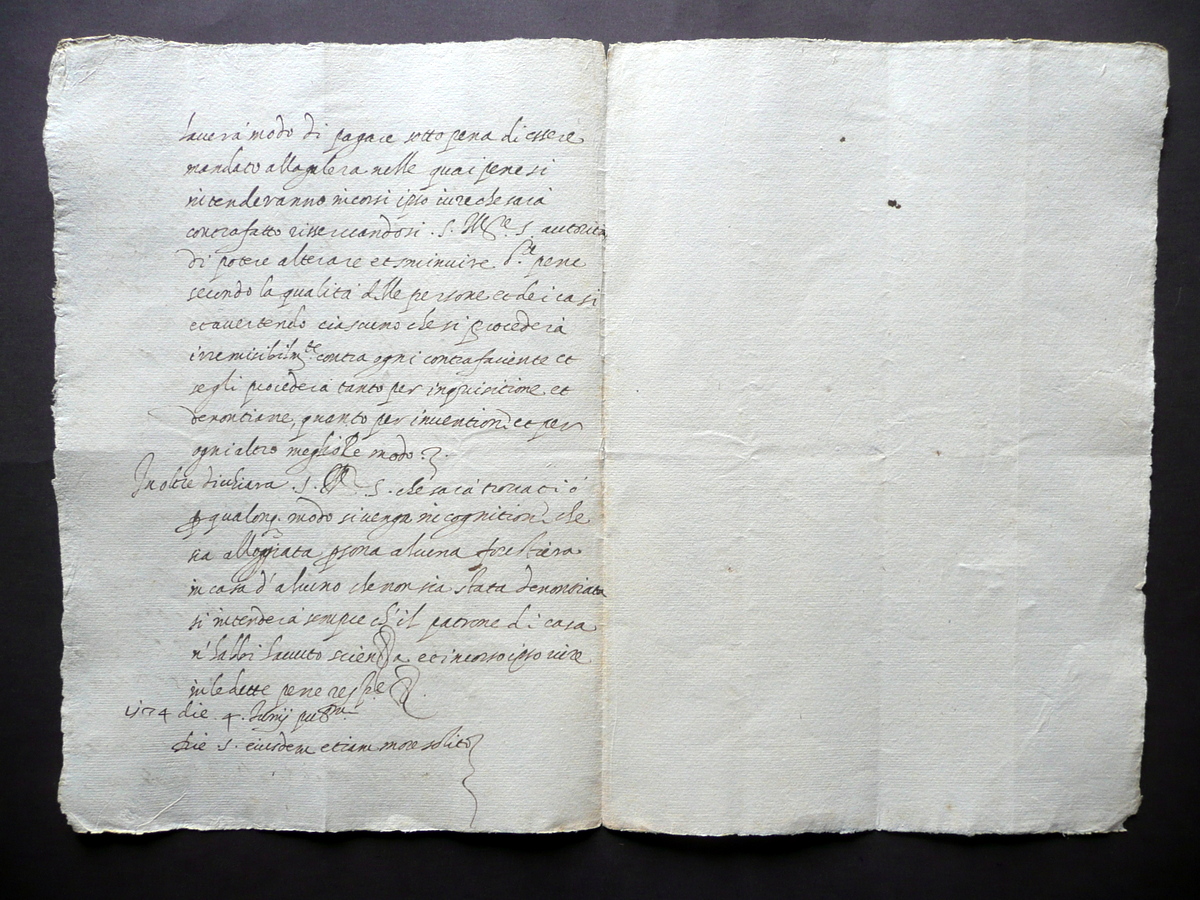 haverà modo di pagare sotto pena di essere
mandato alla galera nelle quai pene si
intenderanno incorsi ipso iure che sarà
contrafatto riservandosi . S. S. autorità
di potere alterare et sminuire d.te pene
secondo la qualità delle persone et dei casi
et avertendo ciascuno che si procederà
irremisibilm.te contra ogni contrafaciente et
segli procederà tanto per inquisitione et
denontiane, quanto per inventione et per
ogni altro megliore modo.
Inoltre dichiara . S. S. che sarà trovati ò
p qualonq. modo si venga in cognitione che
sia alloggiata psona alcuna forestiera
in casa d'alcuno che non sia stata denontiata
si intenderà sempre ch'il patrone di casa
n'habbi havuto scienza et incorso ipso iure
in le dette pene resp.e
1574 die . 4. Junij
Die 5. eiusdem etiam more solito